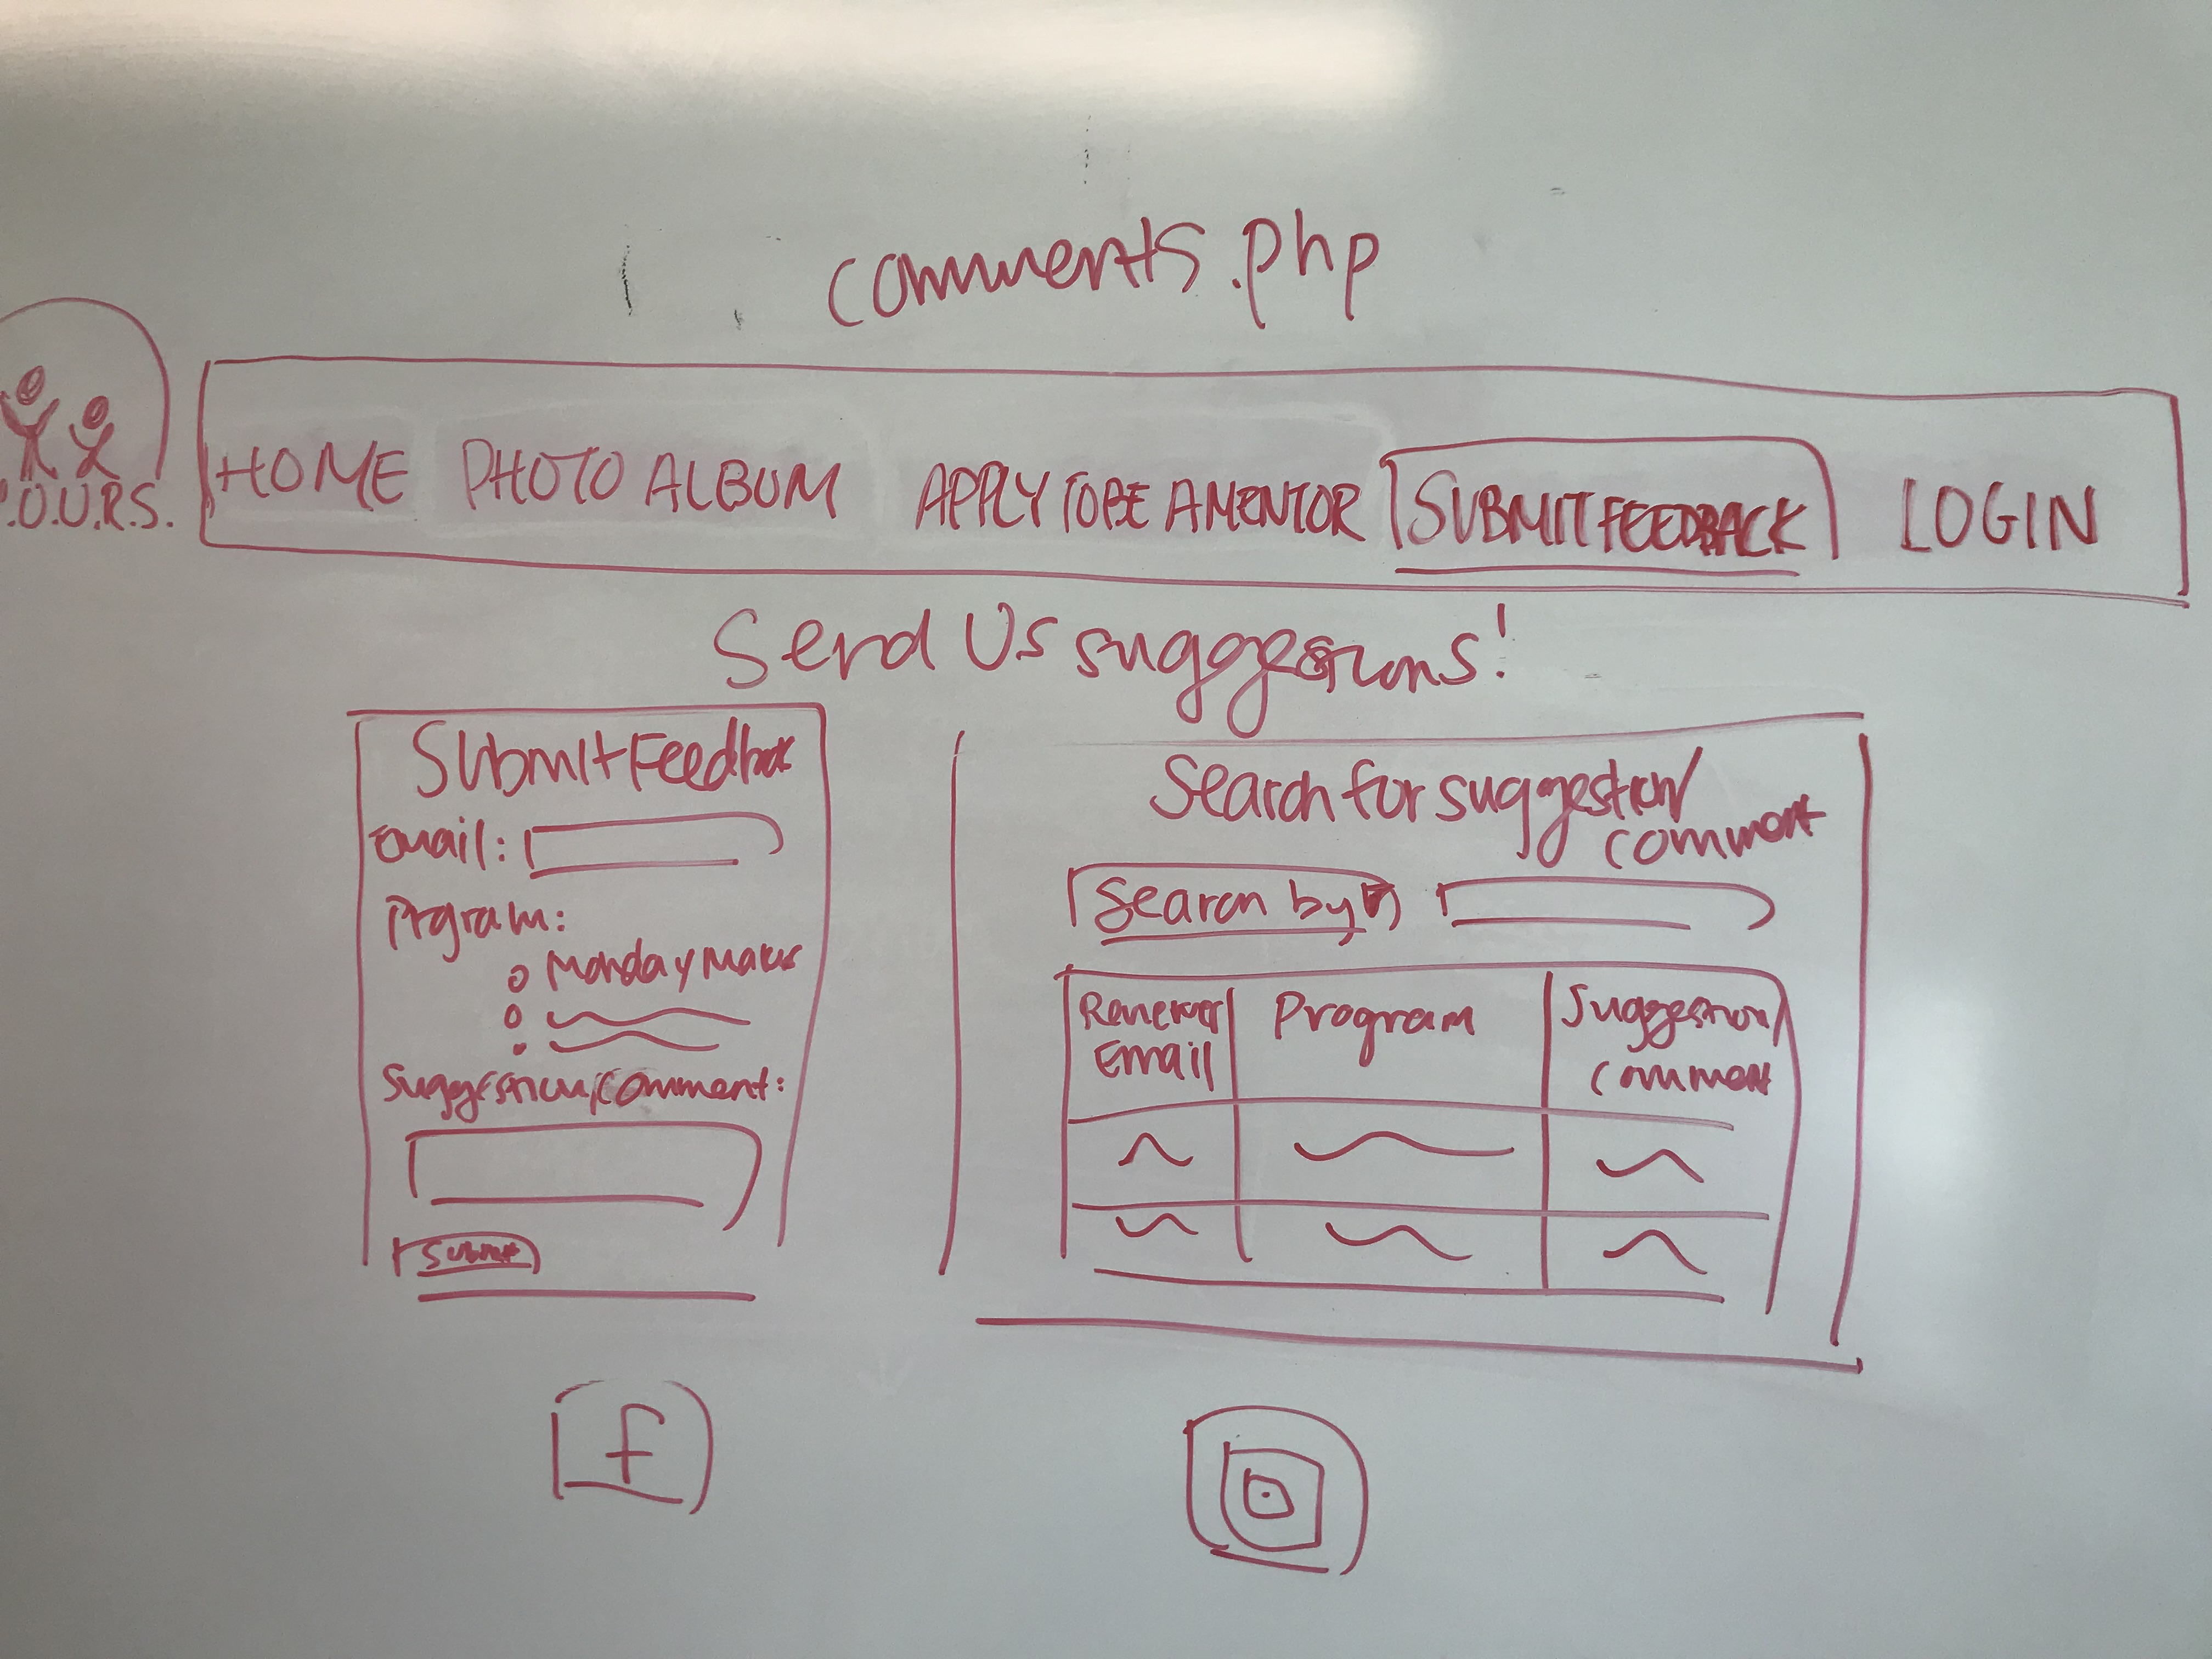 comments.php
.O.U.R.S.
HOME PHOTO ALBUM APPLY TO BE A MENTOR SUBMIT FEEDBACK LOGIN
Send Us suggestions!
Submit Feedback
Email:
Prgram:
Monday
Suggestion/comment:
Submit
Search for suggestion/
comment
Search by
Reviewer
Email
Program
Suggestion/
comment
f